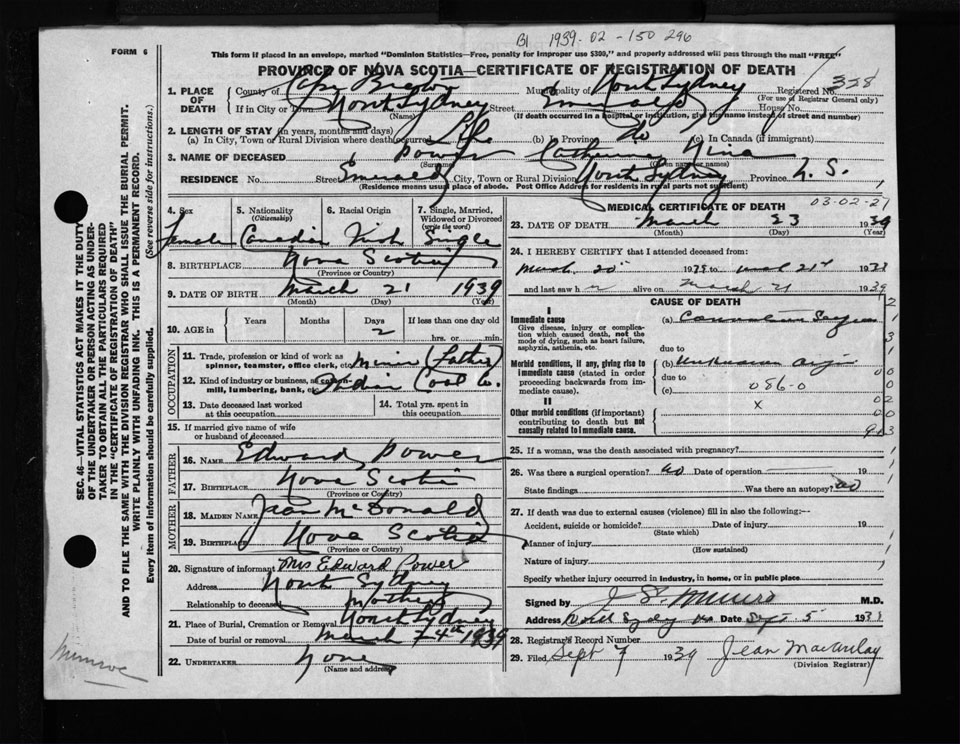 B1 1939-02-150296
FORM 6
This form if placed in an envelope, marked "Dominion Statistics—Free, penalty for improper use $300," and properly addressed will pass through the mail "FREE"
PROVINCE OF NOVA SCOTIA—CERTIFICATE OF REGISTRATION OF DEATH
1. PLACE OF DEATH
County of Cape Breton Municipality of North Sydney Registered No. 328
(For use of Registrar General only)
If in City or Town North Sydney Street Emerald House No.
(Name) (If death occurred in a hospital or institution, give the name instead of street and number)
2. LENGTH OF STAY (in years, months and days)
(a) In City, Town or Rural Division where death occurred Life (b) In Province do (c) In Canada (if immigrant)
3. NAME OF DECEASED Power Catherine Nina
(Surname)
RESIDENCE No. Street Emerald City, Town or Rural Division North Sydney Province N. S.
(Residence means usual place of abode. Post Office Address for residents in rural parts not sufficient)
4. Sex
5. Nationality
(Citizenship)
6. Racial Origin
7. Single, Married, Widowed or Divorced
(write the word)
Female Canadian Irish Single
8. BIRTHPLACE Nova Scotia
(Province or Country)
9. DATE OF BIRTH March 21 1939
(Month) (Day) (Year)
10. AGE in
Years Months Days If less than one day old
2
hrs. or min.
OCCUPATION
11. Trade, profession or kind of work as spinner, teamster, office clerk, etc. Miner (Father)
12. Kind of industry or business, as cotton-mill, lumbering, bank, etc. Coal Co.
13. Date deceased last worked at this occupation
14. Total yrs. spent in this occupation
15. If married give name of wife or husband of deceased
FATHER
16. NAME Edward Power
17. BIRTHPLACE Nova Scotia
(Province or Country)
MOTHER
18. MAIDEN NAME Jean McDonald
19. BIRTHPLACE Nova Scotia
(Province or Country)
20. Signature of informant Mrs Edward Power
Address North Sydney
Relationship to deceased Mother
21. Place of Burial, Cremation or Removal North Sydney
Date of burial or removal March 24th 1939
22. UNDERTAKER None
(Name and address)
MEDICAL CERTIFICATE OF DEATH
03-02-27
23. DATE OF DEATH March 23 1939
(Month) (Day) (Year)
24. I HEREBY CERTIFY that I attended deceased from
March 20 1939 to 21st 1939
and last saw h alive on March 21 1939
CAUSE OF DEATH
I
Immediate cause
Give disease, injury or complication which caused death, not the mode of dying, such as heart failure, asphyxia, asthenia, etc.
(a)
due to
Morbid conditions, if any, giving rise to immediate cause (stated in order proceeding backwards from immediate cause).
(b) Unknown origin
due to
(c) 086-0
II
Other morbid conditions (if important) contributing to death but not causally related to immediate cause.
x
25. If a woman, was the death associated with pregnancy?
26. Was there a surgical operation? no Date of operation 19
State findings Was there an autopsy? no
27. If death was due to external causes (violence) fill in also the following:—
Accident, suicide or homicide? Date of injury 19
(State which)
Manner of injury
(How sustained)
Nature of injury
Specify whether injury occurred in industry, in home, or in public place
Signed by J S Munro M.D.
Address North Sydney NS Date Sept. 5 1939
28. Registrar's Record Number
29. Filed Sept 7 1939 Jean Macaulay
(Division Registrar)
SEC. 46—VITAL STATISTICS ACT MAKES IT THE DUTY OF THE UNDERTAKER OR PERSON ACTING AS UNDERTAKER TO OBTAIN ALL THE PARTICULARS REQUIRED IN THE "CERTIFICATE OF REGISTRATION OF DEATH"
AND TO FILE THE SAME WITH THE DIVISION REGISTRAR WHO SHALL ISSUE THE BURIAL PERMIT.
WRITE PLAINLY WITH UNFADING INK. THIS IS A PERMANENT RECORD.
Every item of information should be carefully supplied. (See reverse side for instructions.)
Munroe